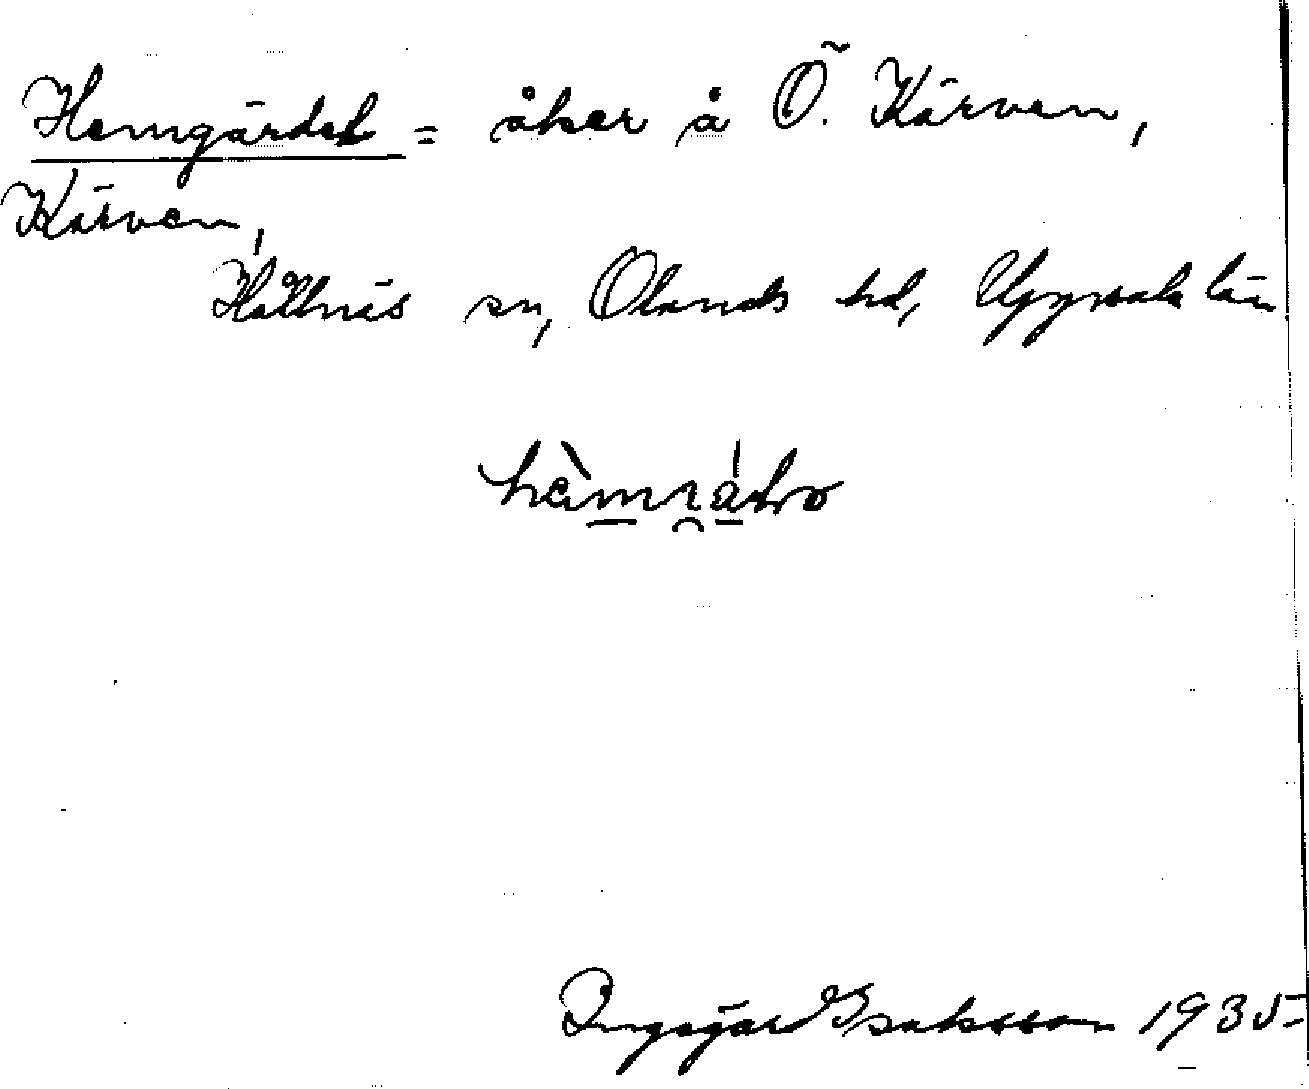 Hemgärdet = åker å Ö. Kärven,
Kärven,
Hållnäs sn, Olands hd, Uppsala län
Ingegärd Isaksson 1935